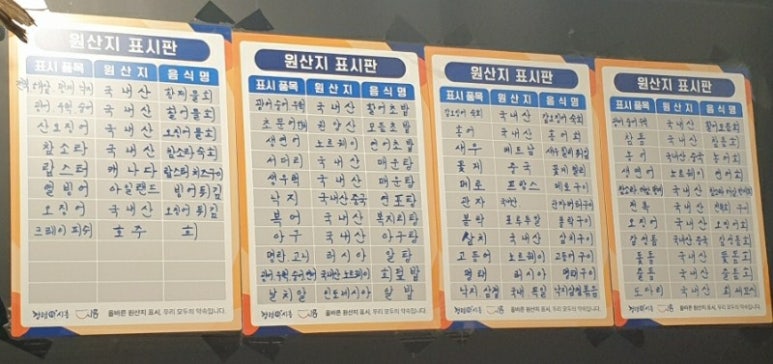 원산지 표시판
표시 품목 원 산 지 음 식 명
국내산
국내산 활어물회
산오징어 국내산 오징어물회
참소라 국내산 참소라숙회
랍스터 캐나다
열빙어 아일랜드 빙어튀김
오징어 국내산 오징어튀김
크레이피쉬 호주 회
올바른 원산지 표시, 우리 모두의 약속입니다.
원산지 표시판
표시 품목 원 산 지 음 식 명
광어 숭어 우럭 국내산 활어초밥
초문어 모듬초밥
생연어 노르웨이 연어초밥
서더리 국내산 매운탕
생우럭 국내산 매운탕
낙지 국내산 중국 연포탕
복어 국내산 복지리탕
아구 국내산 아구탕
명란 고니 러시아 알탕
국내산 노르웨이 회덮밥
날치알 인도네시아 알밥
올바른 원산지 표시, 우리 모두의 약속입니다.
원산지 표시판
표시 품목 원 산 지 음 식 명
갑오징어 국내산 갑오징어숙회
홍어 국내산 홍어회
새우 베트남
꽃게 중국
메로 프랑스 메로구이
관자 국내산 관자버터구이
볼락 포르투갈 볼락구이
삼치 국내산 삼치구이
고등어 노르웨이 고등어구이
명태 러시아 명태구이
낙지 삼겹 국내 독일 낙지삼겹볶음
올바른 원산지 표시, 우리 모두의 약속입니다.
원산지 표시판
표시 품목 원 산 지 음 식 명
광어 숭어 우럭 국내산 활어모듬회
참돔 국내산 참돔회
농어 국내산 중국 농어회
생연어 노르웨이 연어회
국내산
전복 국내산 전복회 구이
오징어 국내산 오징어회
감성돔 국내산 중국 감성돔회
돌돔 국내산 돌돔회
줄돔 국내산 줄돔회
도다리 국내산 회 세꼬시
올바른 원산지 표시, 우리 모두의 약속입니다.